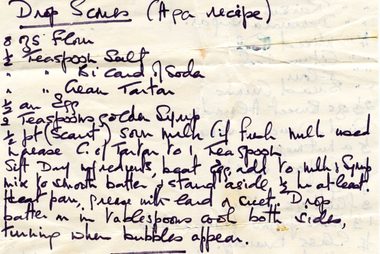 Drop Scones (Aga recipe)
8 ozs Flour
½ Teaspoon Salt
" " Bi Carb of Soda
" " Cream Tartar
½ an Egg
2 Teaspoons golden Syrup
½ pt (Scant) sour milk (if fresh milk used
increase C. of Tartar to 1 Teaspoon
Sift Dry ingredients, beat egg, add to milk, Syrup
mix to smooth batter, stand aside ½ hr at least.
Heat pan, grease with lard or suet. Drop
batter in in Tablespoons cook both sides,
turning when bubbles appear.